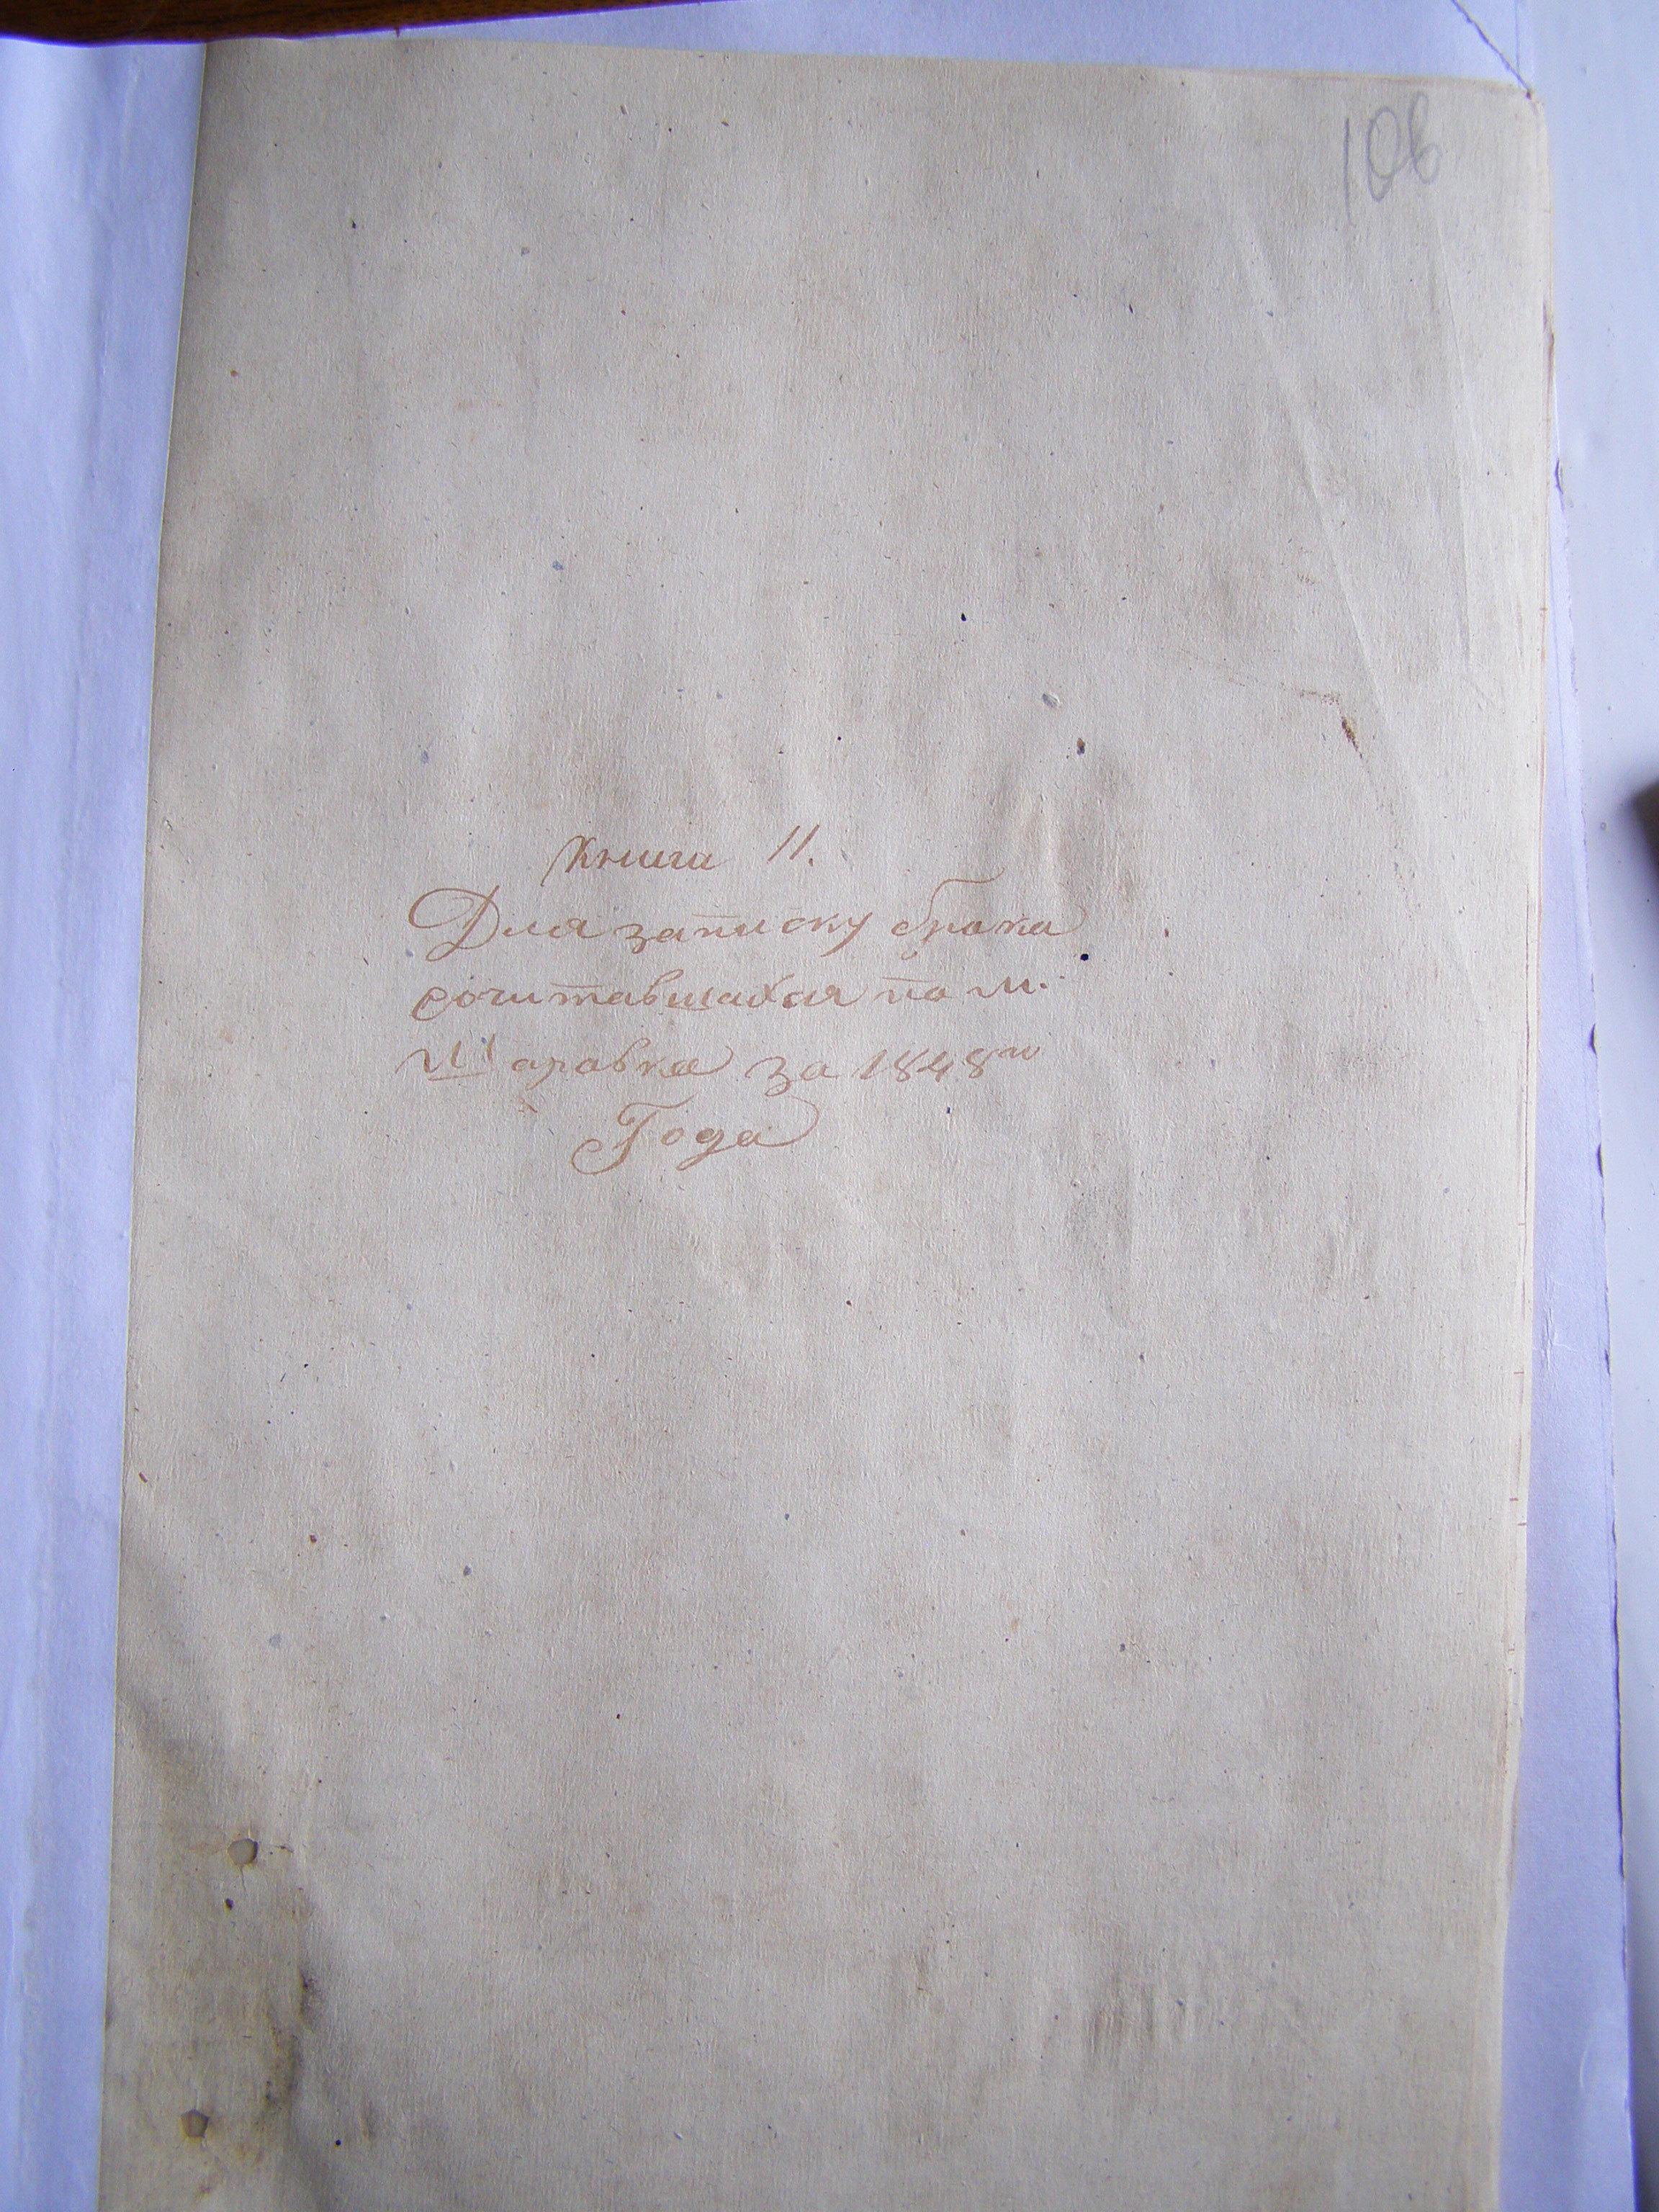 106
Книга 11.
Для записку брака
сочитавшахся по м.
Шаравке за 1848го
Года